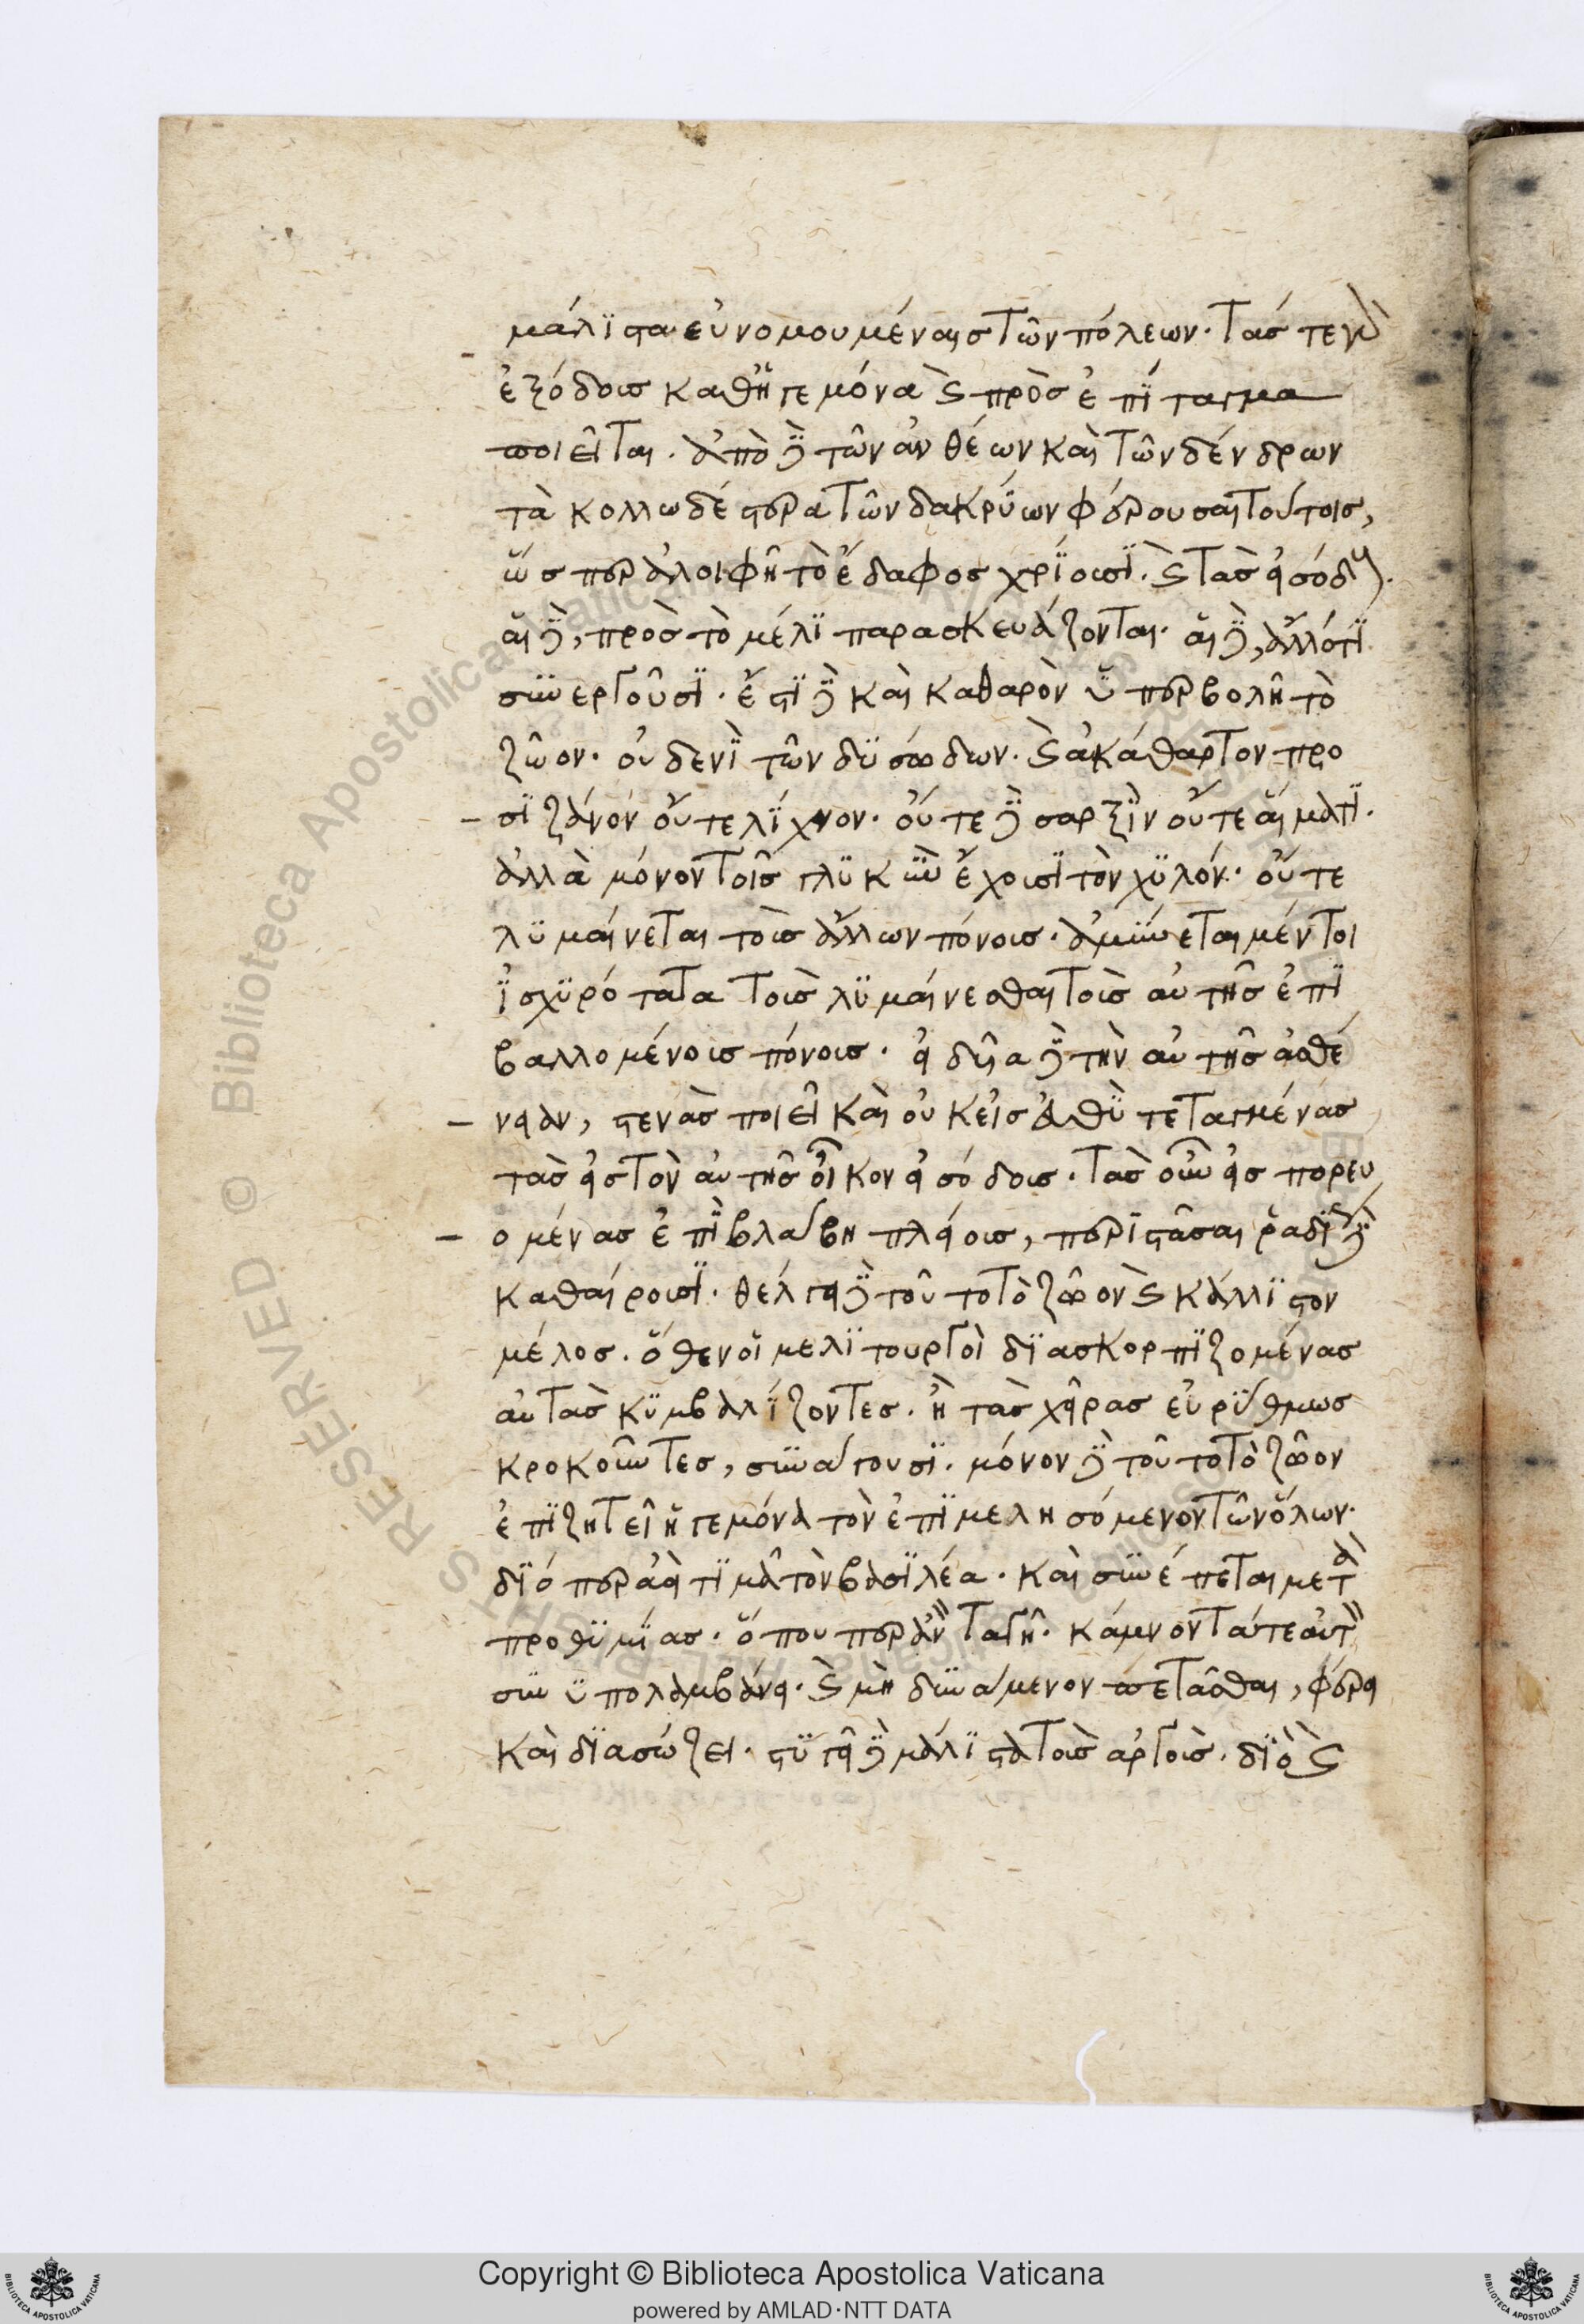 μάλϊστα εὐνομουμέναις τῶν πόλεων. τάς τε γὰρ
ἐξόδους καθ' ἡγεμόνα καὶ πρὸς ἐπίταγμα
ποιεῖται. ἀπὸ δὲ τῶν ἀνθέων καὶ τῶν δένδρων
τὰ κολλωδέστερα τῶν δακρύων φέρουσαι τούτοις,
ὥσπερ ἀλοιφῆ τὸ ἔδαφος χρίουσι. καὶ τὰς εἰσόδους.
αἱ δὲ, πρὸς τὸ μέλϊ παρασκευάζονται. αἱ δὲ, ἄλλό τϊ
συνεργοῦσϊ. ἔστϊ δὲ καὶ καθαρὸν ὑπερβολῆ τὸ
ζῶον. οὐδενὶ τῶν δυσωδων. καὶ ἀκάθαρτον προ
σϊζάνον οὔτε λίχνον. οὔτε δὲ σαρξὶν οὔτε αἵματϊ.
ἀλλὰ μόνον τοῖς γλυκὺν ἔχουσϊ τὸν χυλόν. οὔτε
λυμαίνεται τοῖς ἄλλων πόνοις. ἀμύνεται μέντοι
ἰσχυρότατα τοὺς λυμαίνεσθαι τοῖς αὐτῆς ἐπϊ
βαλλομένους πόνοις. εἰδυῖα δὲ τὴν αὐτῆς ἀσθέ
νειαν, στενὰς ποιεῖ καὶ οὐκ εἰς εὐθὺ τεταγμένας
τὰς εἰς τὸν αὐτῆς οἶκον εἰσόδους. τὰς οὖν εἰσπορευ
ομένας ἐπὶ βλάβη πλείους, περιστᾶσαι ῥαδίως
καθαίρουσϊ. θέλγει δὲ τοῦτο τὸ ζῶον καὶ κάλλϊστον
μέλος. ὅθεν οἱ μελϊτουργοὶ διασκορπϊζομένας
αὐτὰς κυμβαλίζοντες. ἢ τὰς χεῖρας εὐρύθμως
κροκοῦντες, συνάγουσϊ. μόνον δὲ τοῦτο τὸ ζῶον
ἐπϊζητεῖ ἡγεμόνα τὸν ἐπϊμελησόμενον τῶν ὅλων.
διόπερ ἀεὶ τιμᾶ τὸν βασϊλέα. καὶ συνέπεται μετὰ
προθυμίας. ὅπουπερ ἂν ταγῆ. κάμνοντά τε αὐτὸν
συνυπολαμβάνει. καὶ μὴ δυνάμενον πέτασθαι, φέρει
καὶ διασώζει. στυγεῖ δὲ μάλϊστα τοὺς ἀργούς. διὸ καὶ
Copyright © Biblioteca Apostolica Vaticana
powered by AMLAD·NTT DATA